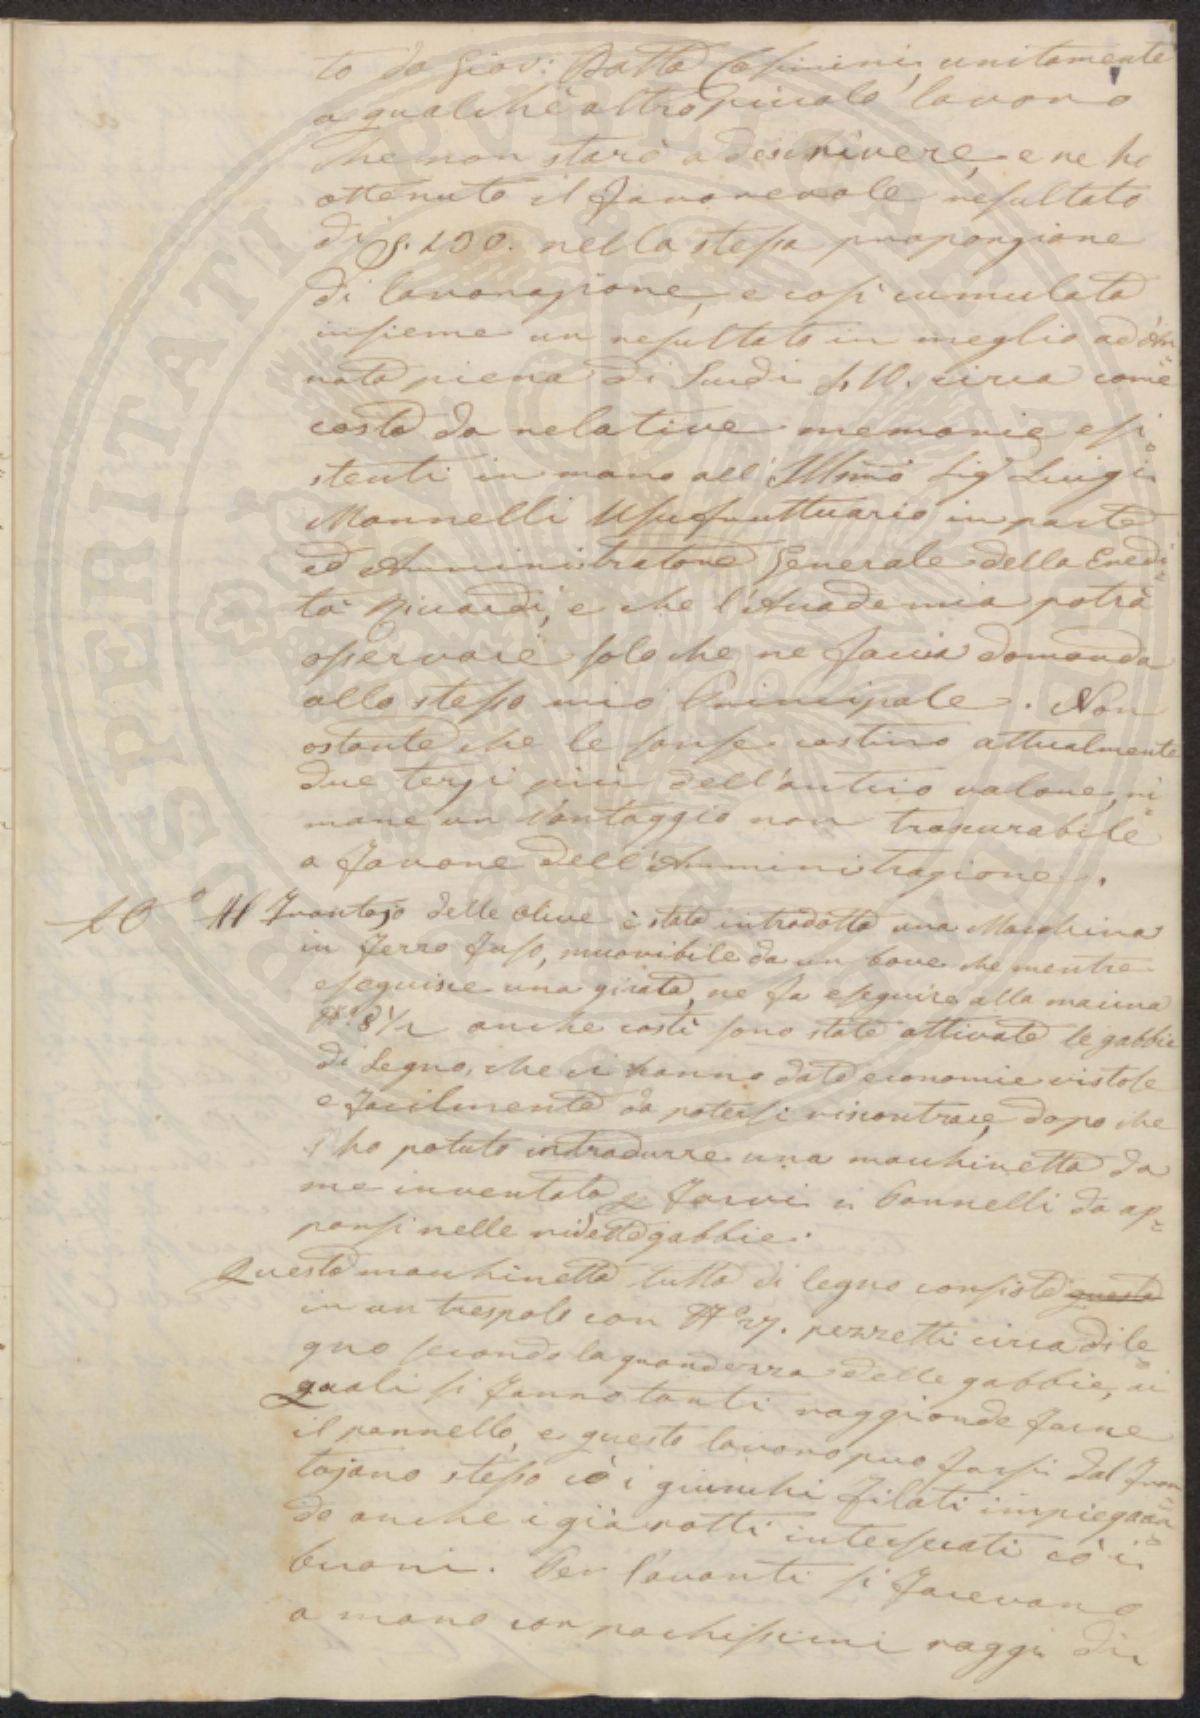 to da Giov: Batta Casinini, unitamente
a qualche altro piccolo lavoro
che non starò a descrivere, e ne ho
ottenuto il favorevole resultato
di 130. nella stessa proporzione
di lavorazione, e così cumulato
insieme un resultato in meglio ad An-
nata piena di Scudi circa come
costa da relative memorie esi-
stenti in mano all' Illsmo Sig Luigi
Mannelli Usufruttuario in parte
ed Amministratore Generale della Eredi-
tà Riccardi, e che l'Accademia potrà
osservare solo che ne faccia domanda
allo stesso mio Principale. Non
ostante che le sonse costino attualmente
due terzi più dell'antico valore, ri-
mane un Vantaggio non trascurabile
a favore dell'Amministrazione.
10° Al Frantojo delle Olive è stata introdotta una Macchina
in ferro fuso, muovibile da un bove che mentre
eseguisce una girata, ne fa eseguire alla macina
N° 8½ anche costì sono state attivate le gabbie
di Legno, che ci hanno dato economie vistose
e facilmente da potersi riscontrare, dopo che
ho potuto intradurre una macchinetta da
me inventata p farvi i Pannelli da ap-
porsi nelle ridette gabbie.
Questa macchinetta tutta di legno consiste questa
in un trespolo con N° 27. pezzetti circa di le-
gno secondo la grandezza delle gabbie, ai
quali si fanno tanti raggi onde farne
il pannello, e questo lavoro puo farsi dal fran-
tojano stesso cò i giunchi filati impiegan-
do anche i già rotti intersecati cò i
buoni. Per l'avanti si facevano
a mano con pochissimi raggi di